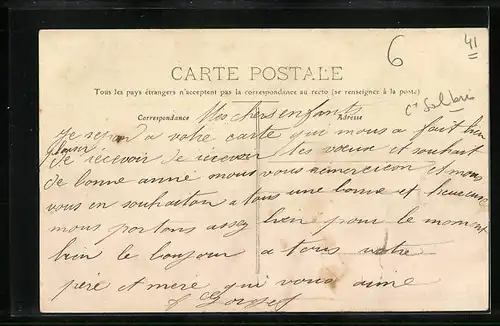 6
41
CARTE POSTALE
Tous les pays étrangers n'acceptent pas la correspondance au recto (se renseigner à la poste)
Correspondance
Adresse
Mes chers enfants
Je a votre carte qui nous a fait bien
plaisir
de recevoir de recevoir les voeux et souhait
de bonne anné nous vous remercion et nous
vous en souhaiton a tous une bonne et heureuse
nous portons assez bien pour le moment
bien le bonjour a tous votre
père et mere qui vous aime